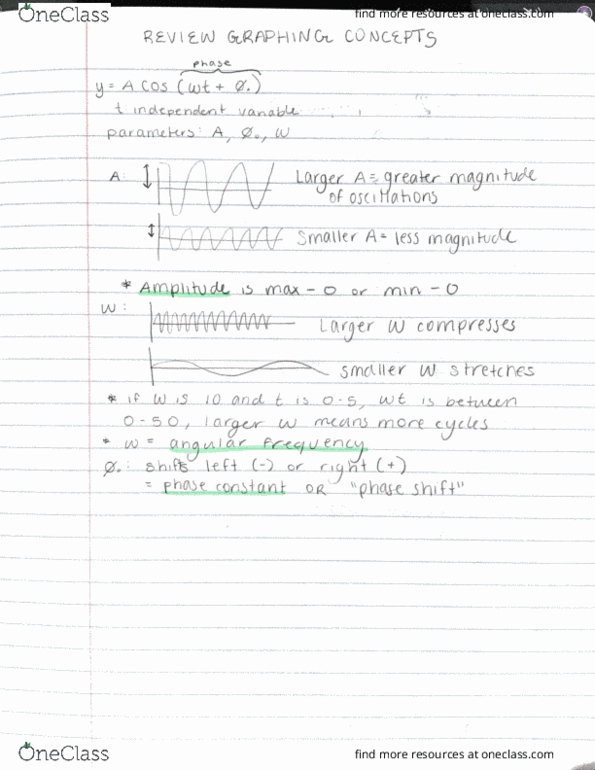 OneClass
find more resources at oneclass.com
REVIEW GRAPHING CONCEPTS
phase
y = A cos (wt + ø.)
t independent variable
parameters: A, ø., w
A: Larger A = greater magnitude
of oscillations
Smaller A = less magnitude
* Amplitude is max - 0 or min - 0
W: Larger W compresses
smaller W stretches
* if W is 10 and t is 0-5, wt is between
0-50, larger w means more cycles
* w = angular frequency
ø.: shifts left (-) or right (+)
= phase constant OR "phase shift"
OneClass
find more resources at oneclass.com